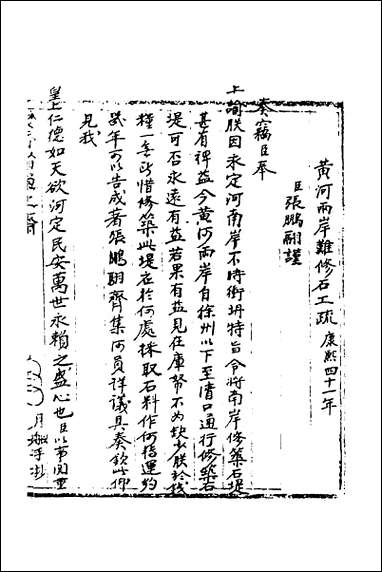 黃河兩岸難修石工疏 康熙四十一年
臣張鵬翮謹
奏竊臣奉
上諭朕因永定河南岸不時衝坍特旨令將南岸修築石堤
甚有裨益今黃河兩岸自徐州以下至清口通行修築石
堤可否永遠有益若果有益見在庫帑不為缺少朕於錢
糧一無所惜修築此堤應於何處採取石料作何搭運約
幾年可以告成著張鵬翮齊集河員詳議具奏欽此仰
見我
皇上仁德如天欲河定民安萬世永賴之盛心也臣以事關重